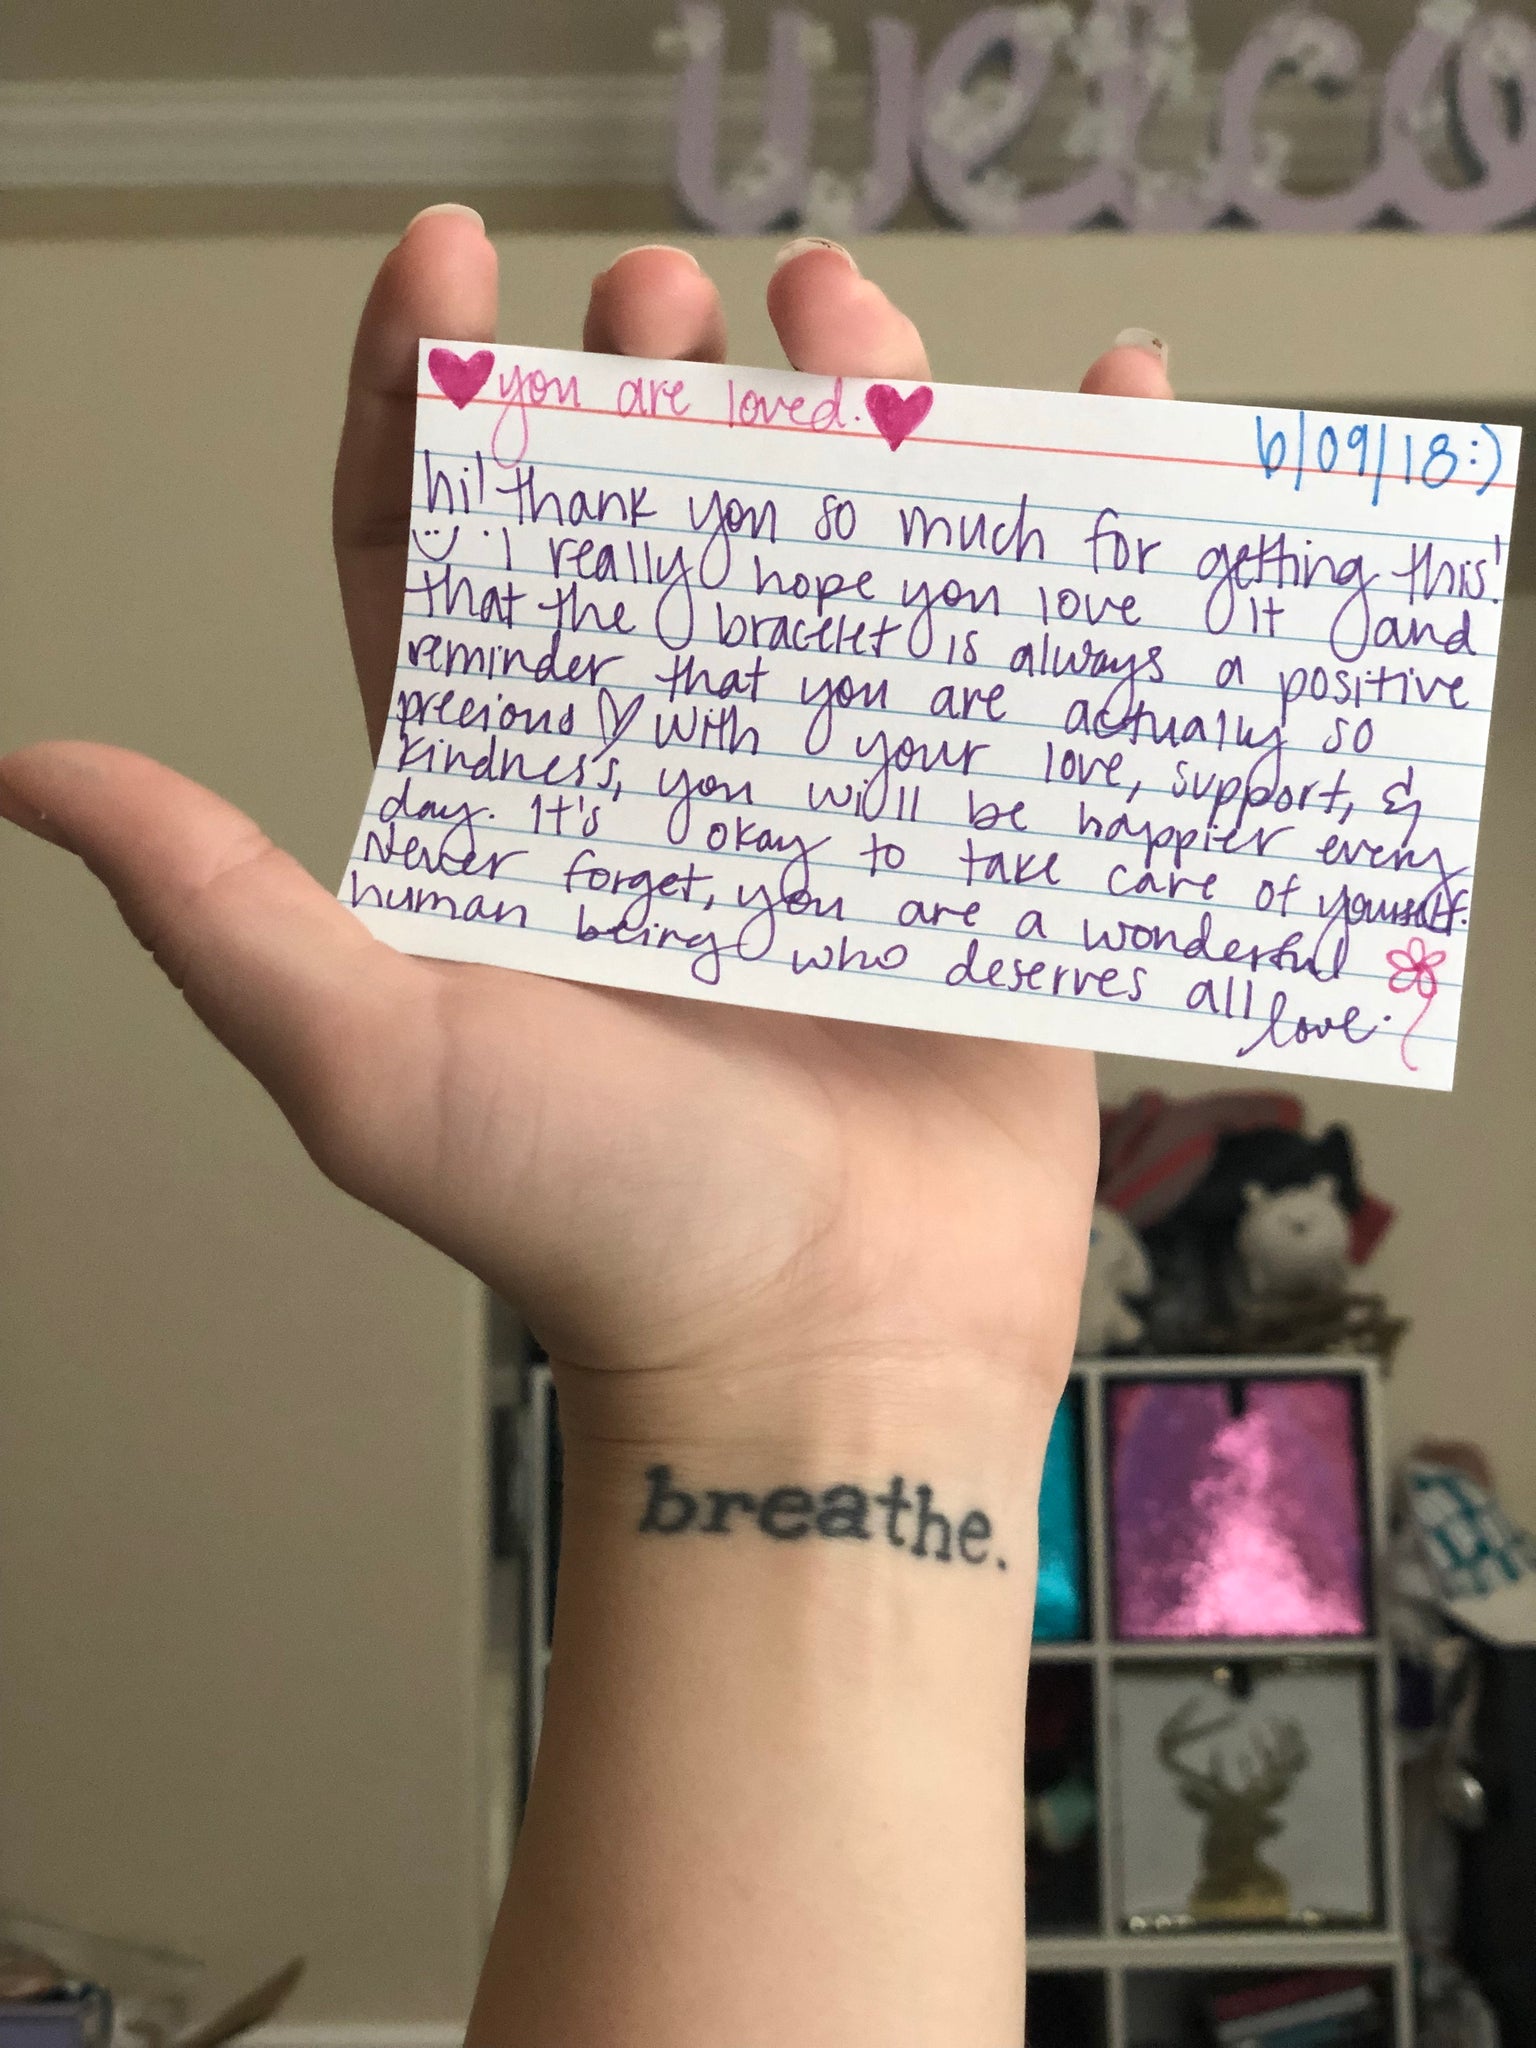 welco
you are loved.
6/09/18 :)
hi! thank you so much for getting this!
:) I really hope you love it and
that the bracelet is always a positive
reminder that you are actually so
precious ♡ with your love, support, &
kindness, you will be happier every
day. It's okay to take care of yourself.
Never forget, you are a wonderful
human being who deserves all
love.
breathe.